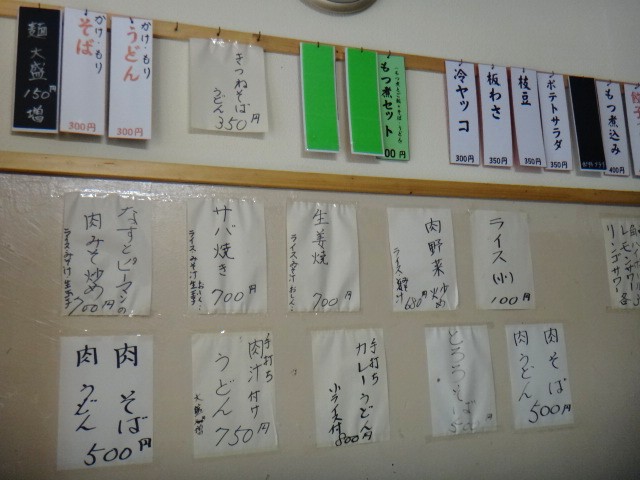 麺大盛
150円増
かけ・もり
そば
300円
かけ・もり
うどん
300円
きつねそば
うどん
350円
もつ煮セット
00円
冷ヤッコ
300円
板わさ
350円
枝豆
350円
ポテトサラダ
350円
もつ煮込み
400円
なすとピーマンの
肉みそ炒め
700円
サバ焼き
700円
ライス
生姜焼
700円
ライス
肉野菜炒め
ライス
650円
ライス(小)
100円
レモンサワー
リンゴサワー
肉そば
肉うどん
500円
手打ち
肉汁付け
うどん
750円
手打ち
カレーうどん
小ライス付
800円
とろろそば
500
肉そば
肉うどん
500円